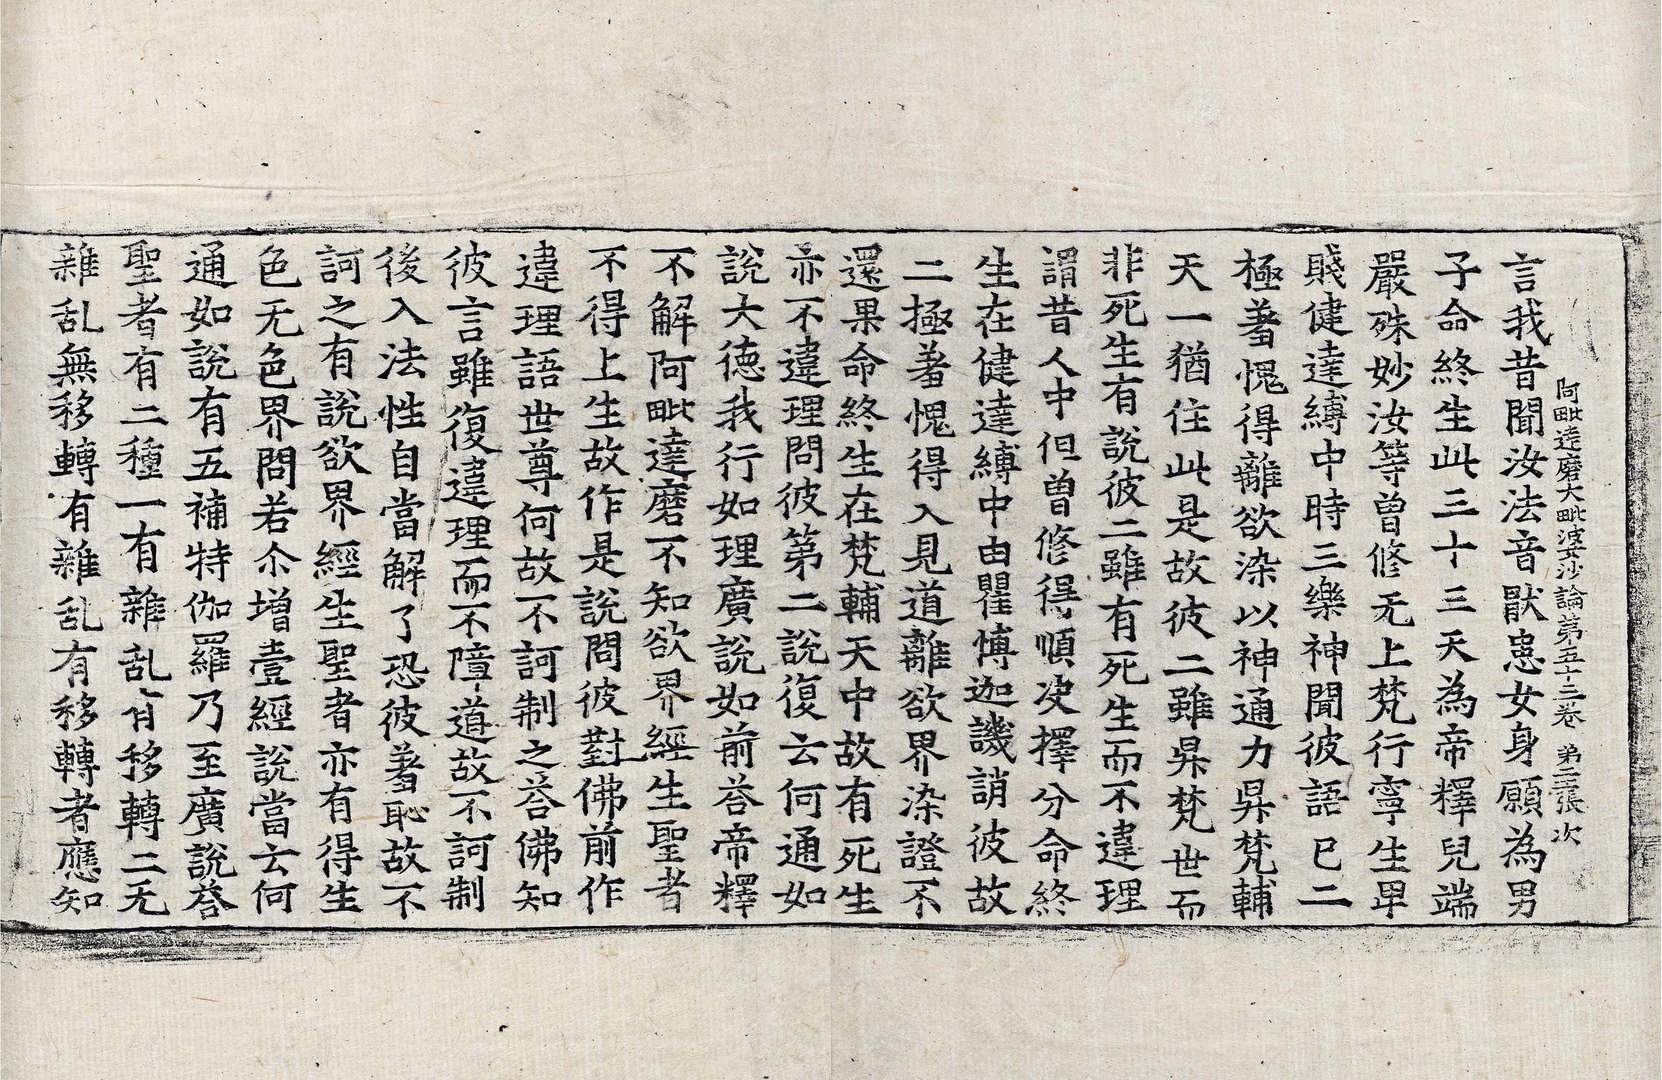 阿毗達磨大毗婆沙論第五十三卷 第二張 次
言我昔聞汝法音猒患女身願為男
子命終生此三十三天為帝釋兒端
嚴殊妙汝等曾修无上梵行寧生卑
賤健達縛中時三樂神聞彼語已二
極著愧得離欲染以神通力昇梵輔
天一猶住此是故彼二雖昇梵世而
非死生有說彼二雖有死生而不違理
謂昔人中但曾修得順决擇分命終
生在健達縛中由瞿博迦譏誚彼故
二極著愧得入見道離欲界染證不
還果命終生在梵輔天中故有死生
亦不違理問彼第二說復云何通如
說大德我行如理廣說如前荅帝釋
不解阿毗達磨不知欲界經生聖者
不得上生故作是說問彼對佛前作
違理語世尊何故不訶制之荅佛知
彼言雖復違理而不障道故不訶制
後入法性自當解了恐彼著恥故不
訶之有說欲界經生聖者亦有得生
色无色界問若尒增壹經說當云何
通如說有五補特伽羅乃至廣說荅
聖者有二種一有雜乱有移轉二无
雜乱無移轉有雜乱有移轉者應知